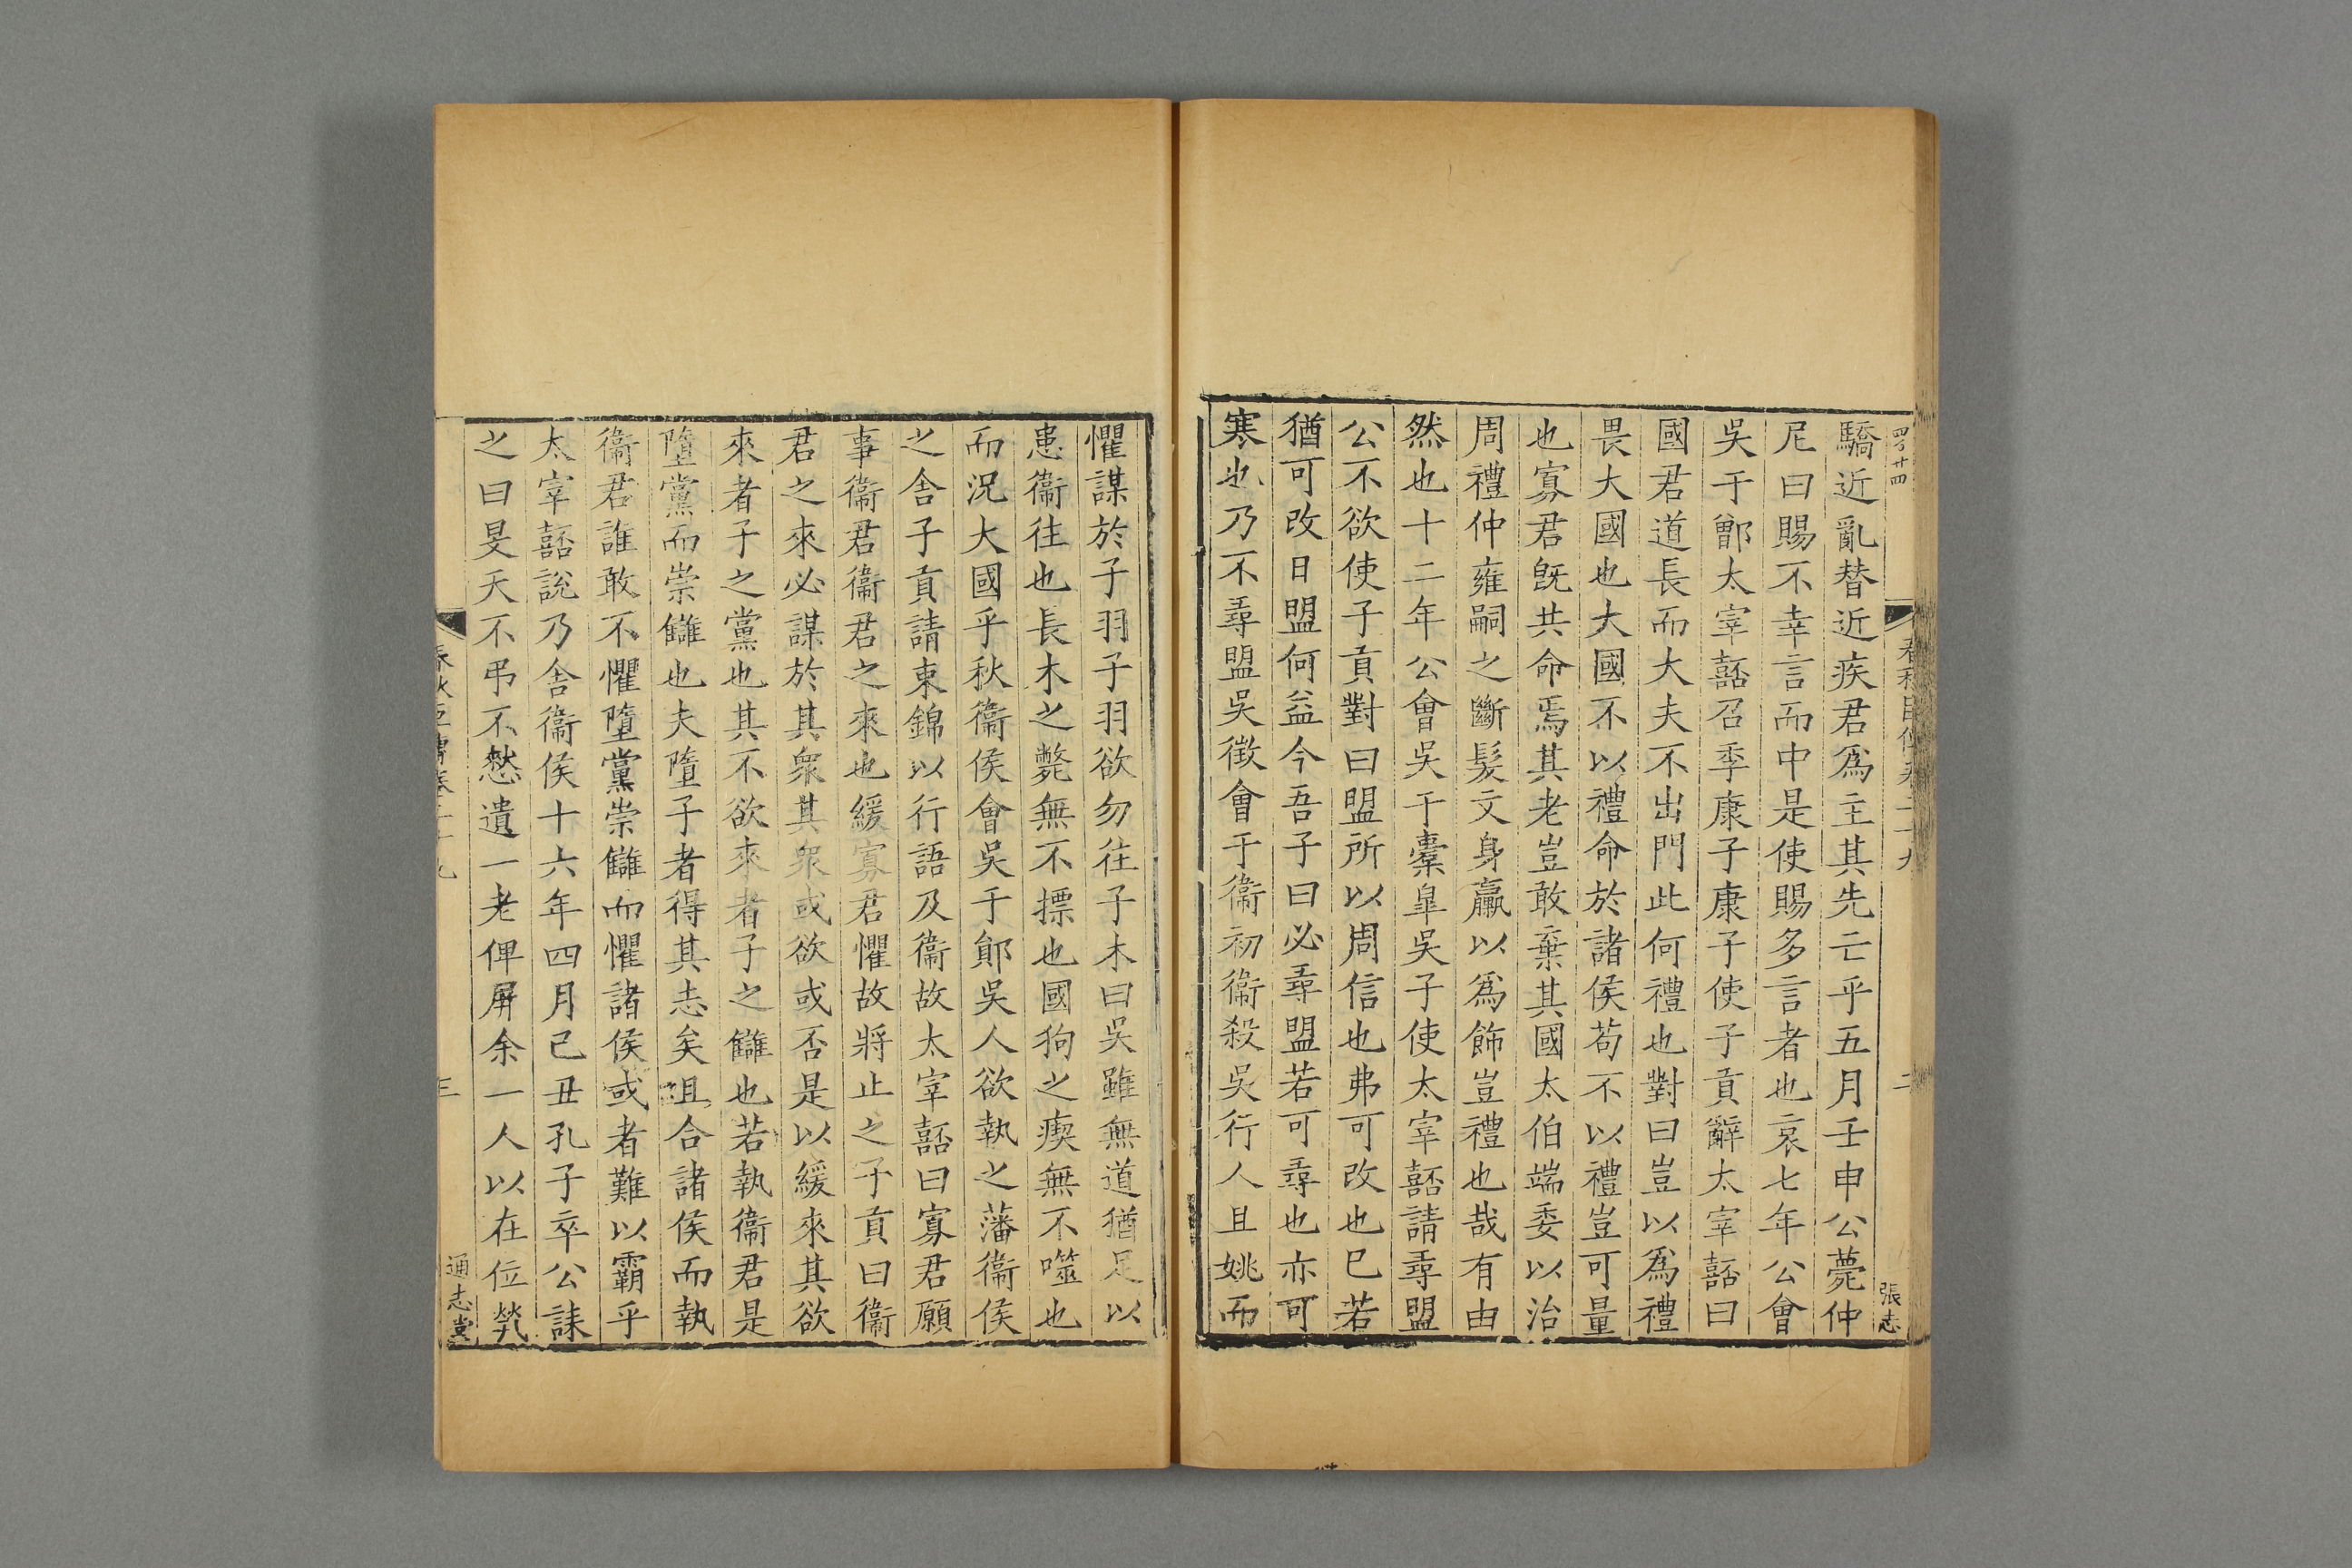 驕近亂替近疾君爲主其先亡乎五月壬申公薨仲
尼曰賜不幸言而中是使賜多言者也哀七年公會
吳于鄫太宰嚭召季康子康子使子貢辭太宰嚭曰
國君道長而大夫不出門此何禮也對曰豈以爲禮
畏大國也大國不以禮命於諸侯苟不以禮豈可量
也寡君旣共命焉其老豈敢棄其國太伯端委以治
周禮仲雍嗣之斷髮文身臝以爲飾豈禮也哉有由
然也十二年公會吳于橐皐吳子使太宰嚭請尋盟
公不欲使子貢對曰盟所以周信也弗可改也已若
猶可改日盟何益今吾子曰必尋盟若可尋也亦可
寒也乃不尋盟吳徵會于衞初衞殺吳行人且姚而
懼謀於子羽子羽欲勿往子木曰吳雖無道猶足以
患衞往也長木之斃無不摽也國狗之瘈無不噬也
而況大國乎秋衞侯會吳于鄖吳人欲執之藩衞侯
之舍子貢請束錦以行語及衞故太宰嚭曰寡君願
事衞君衞君之來也緩寡君懼故將止之子貢曰衞
君之來必謀於其衆其衆或欲或否是以緩來其欲
來者子之黨也其不欲來者子之讎也若執衞君是
墮黨而崇讎也夫墮子者得其志矣且合諸侯而執
衞君誰敢不懼墮黨崇讎而懼諸侯或者難以霸乎
太宰嚭說乃舍衞侯十六年四月己丑孔子卒公誄
之曰旻天不弔不憖遺一老俾屏余一人以在位煢
張志
二
三
通志堂